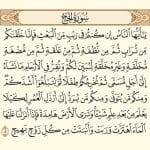 سُورَةُ الْحَجِّ
يَٰٓأَيُّهَا النَّاسُ إِن كُنتُمْ فِي رَيْبٍ مِّنَ الْبَعْثِ فَإِنَّا خَلَقْنَٰكُم
مِّن تُرَابٍ ثُمَّ مِن نُّطْفَةٍ ثُمَّ مِنْ عَلَقَةٍ ثُمَّ مِن مُّضْغَةٍ
مُّخَلَّقَةٍ وَغَيْرِ مُخَلَّقَةٍ لِّنُبَيِّنَ لَكُمْ وَنُقِرُّ فِي الْأَرْحَامِ مَا نَشَآءُ
إِلَىٰٓ أَجَلٍ مُّسَمًّى ثُمَّ نُخْرِجُكُمْ طِفْلًا ثُمَّ لِتَبْلُغُوٓا أَشُدَّكُمْ
وَمِنكُم مَّن يُتَوَفَّىٰ وَمِنكُم مَّن يُرَدُّ إِلَىٰٓ أَرْذَلِ الْعُمُرِ لِكَيْلَا
يَعْلَمَ مِنۢ بَعْدِ عِلْمٍ شَيْـًٔا وَتَرَى الْأَرْضَ هَامِدَةً فَإِذَآ أَنزَلْنَا عَلَيْهَا
الْمَآءَ اهْتَزَّتْ وَرَبَتْ وَأَنۢبَتَتْ مِن كُلِّ زَوْجٍۭ بَهِيجٍ ٥